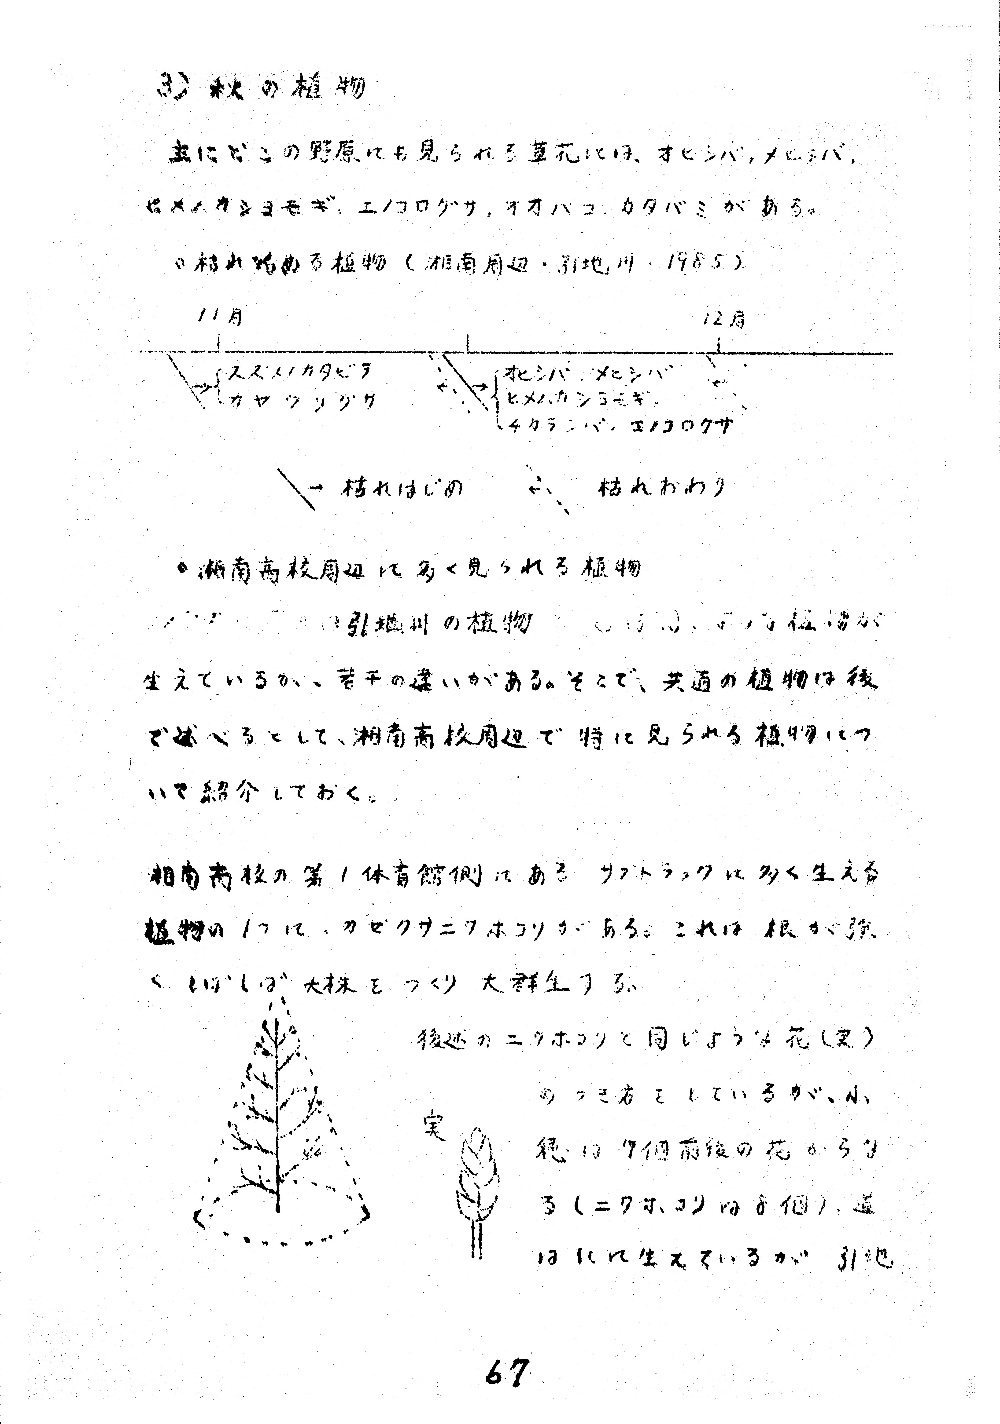 3) 秋の植物
主にどこの野原にも見られる草花には、オヒシバ,メヒシバ,
ヒメムカシヨモギ、エノコログサ,オオバコ、カタバミがある。
○枯れ始める植物（湘南周辺・引地川・1985）
11月 12月
スズメノカタビラ
カヤツリグサ
オヒシバ、メヒシバ
ヒメムカシヨモギ、
チカラシバ、エノコログサ
枯れはじめ 枯れおわり
○湘南高校周辺に多く見られる植物
引地川の植物 ような植物が
生えているが、若干の違いがある。そこで、共通の植物は後
で述べるとして、湘南高校周辺で特に見られる植物につ
いて紹介しておく。
湘南高校の第1体育館側にあるサブトラックに多く生える
植物の1つに、カゼクサニワホコリがある。これは根が強
くしばしば大株をつくり大群生する。
後述のニワホコリと同じような花（実）
のつき方をしているが、小
穂は7個前後の花からな
る（ニワホコリは8個）、道
ばたに生えているが 引地
実
67